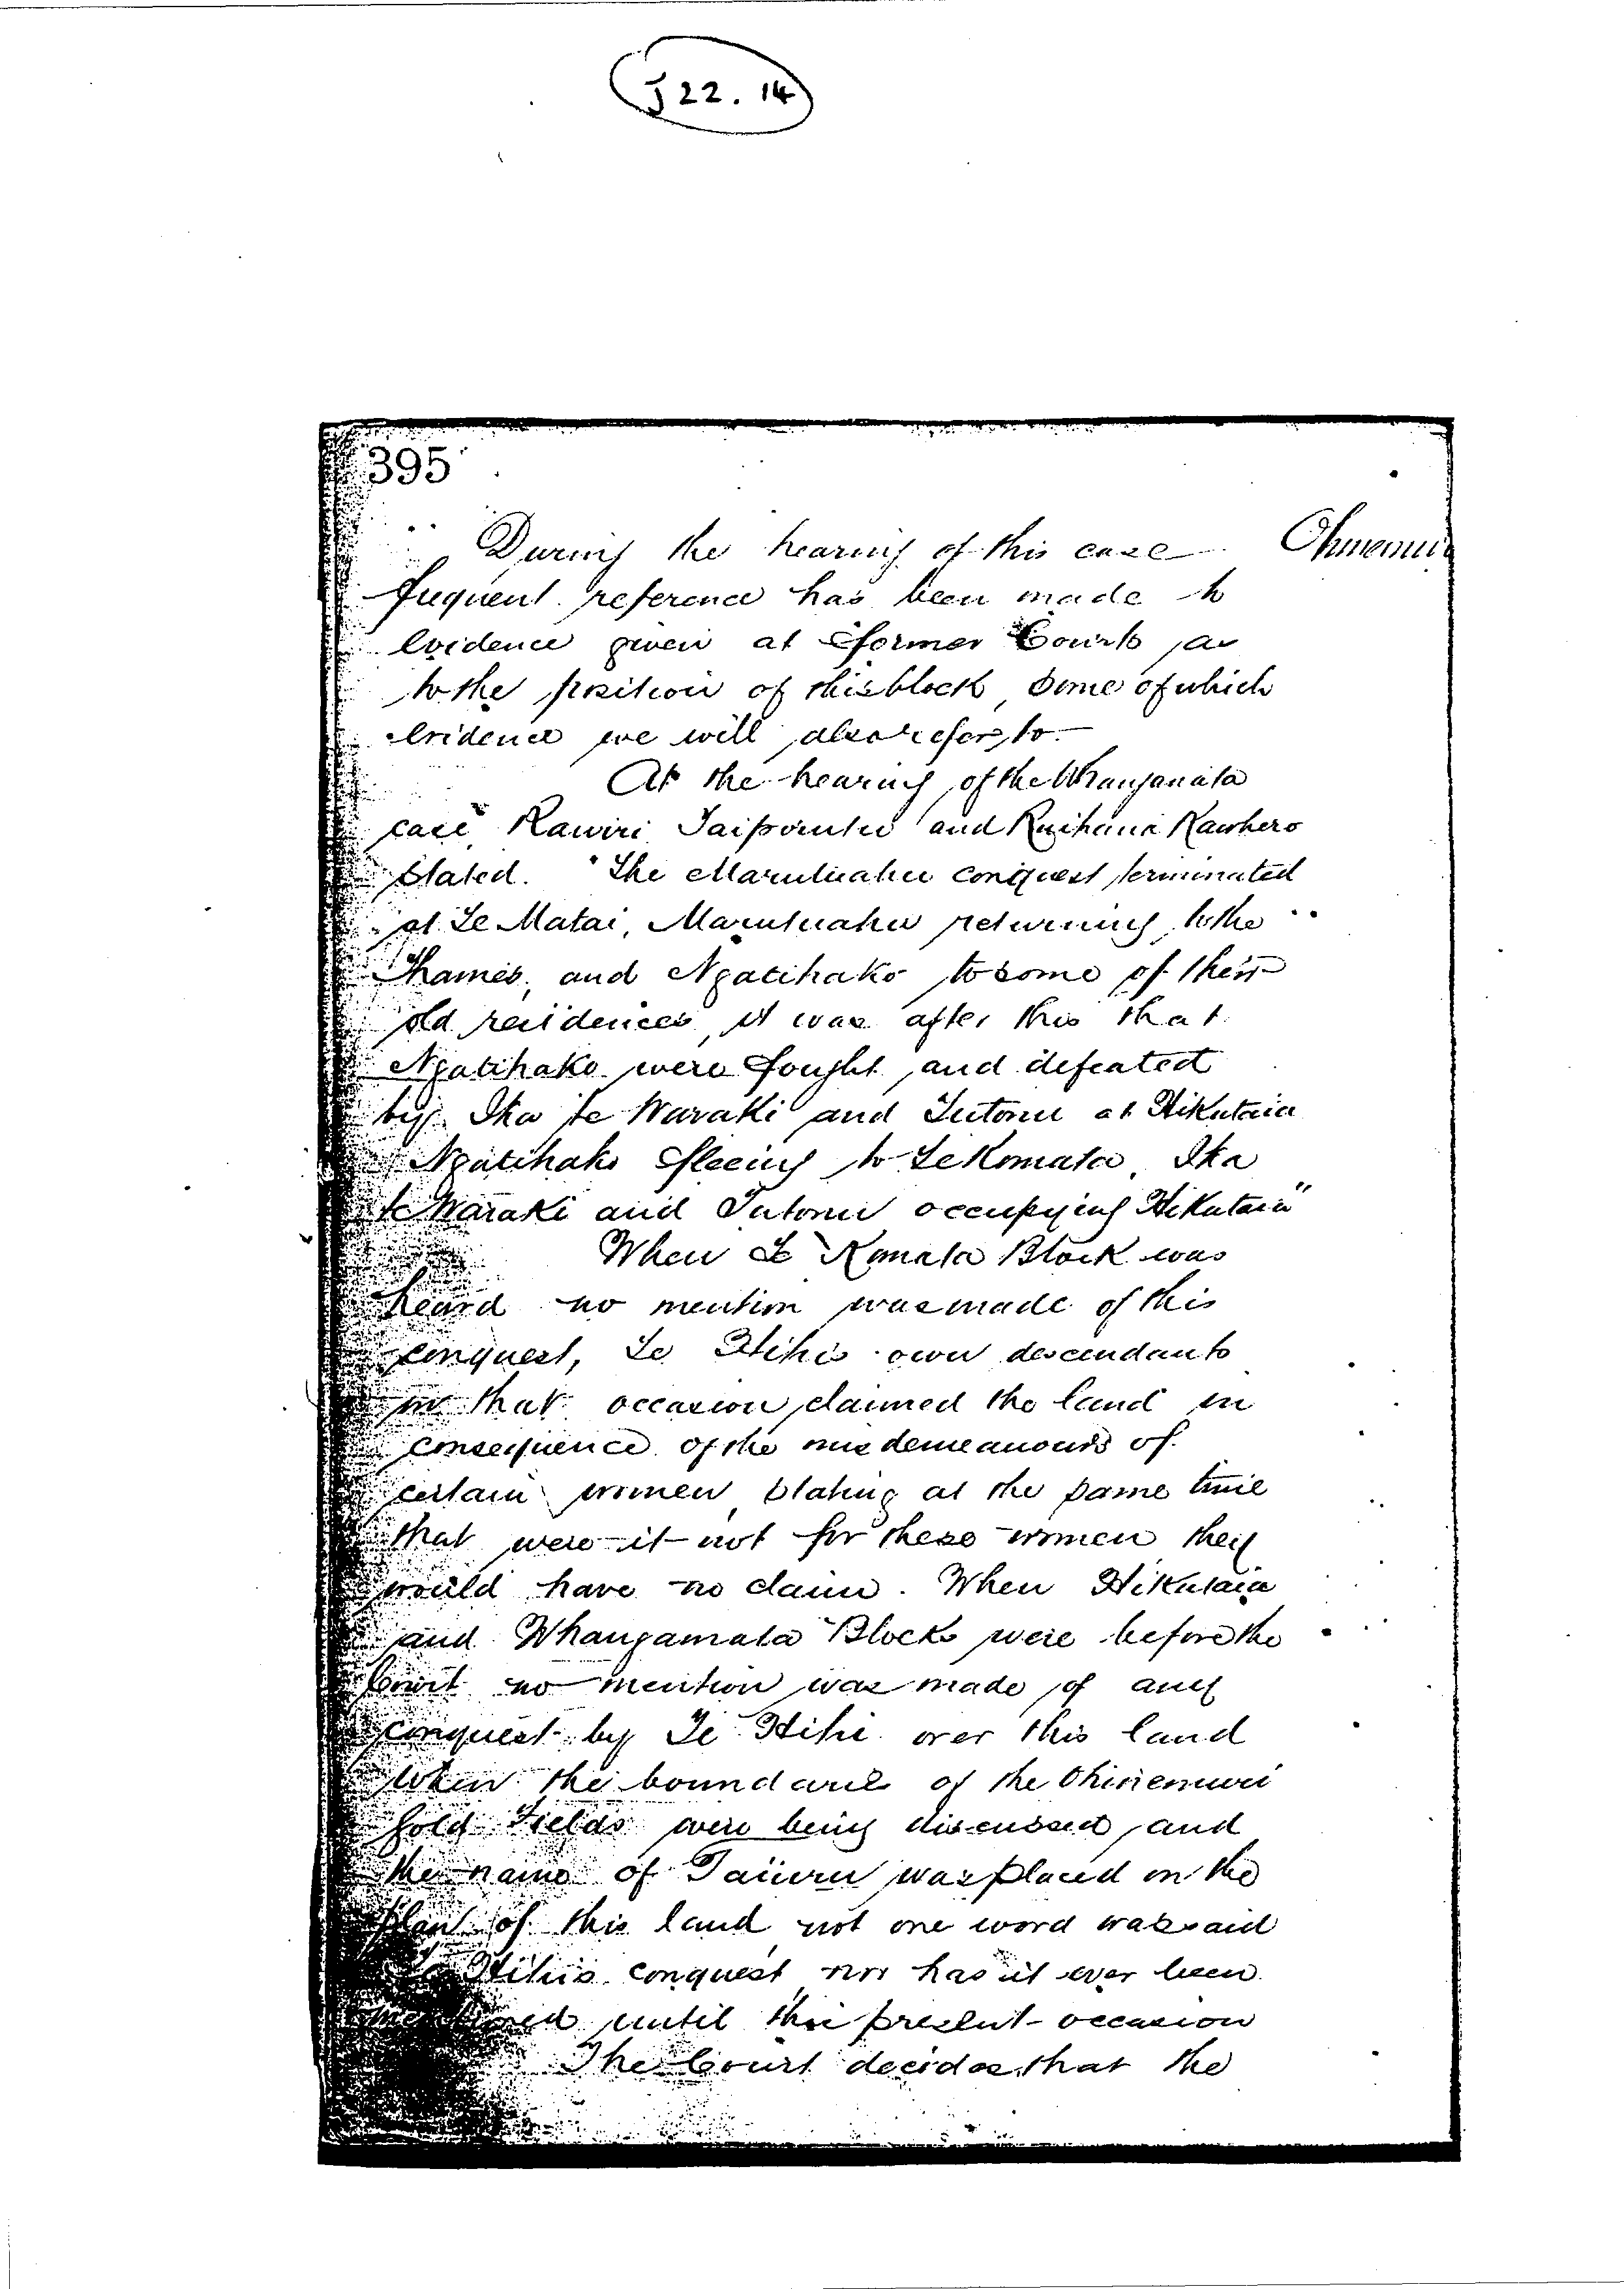 J 22. 14
395
During the hearing of this case Ohinemuri
frequent reference has been made to
evidence given at former Courts as
to the position of this block some of which
evidence we will also refer to.
At the hearing of the Whangamata
case Rawiri Taiporutu and Kawhero
stated. "The Marutuahu conquest terminated
at Te Matai, Marutuahu returning to the
Thames, and Ngatihako to some of their
old residences, it was after this that
Ngatihako were fought and defeated
by Ika te Waraki and Tutonu at Hikutaia
Ngatihako fleeing to Te Komata, Ika
te Waraki and Tutonu occupying Hikutaia"
When Te Komata Block was
heard no mention was made of this
conquest, Te Hihis own descendants
on that occasion claimed the land in
consequence of the misdemeanours of
certain women stating at the same time
that were it not for these women they
would have no claim. When Hikutaia
and Whangamata Blocks were before the
Court no mention was made of any
conquest by Te Hihi over this land
When the boundaries of the Ohinemuri
Gold Fields were being discussed and
the name of was placed on the
plan of this land not one word was said
Hihis conquest nor has it ever been
mentioned until the present occasion
The Court decides that the